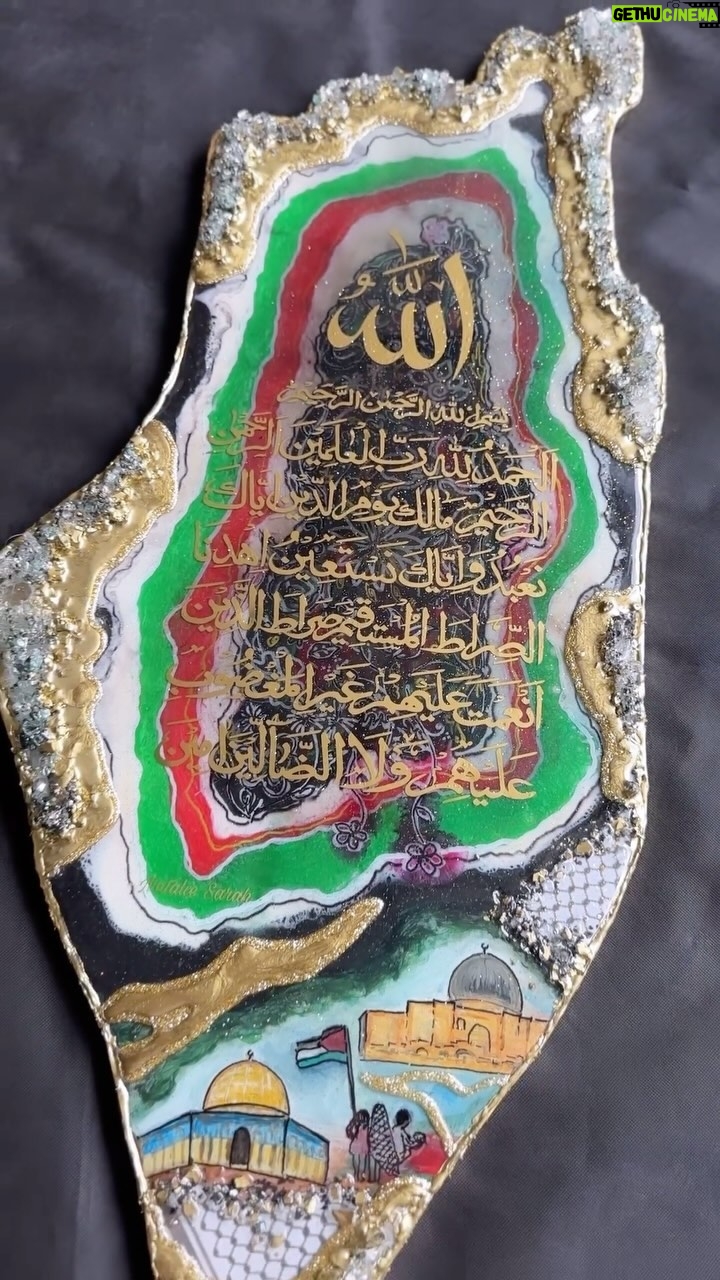 GETHUCINEMA
الله
بسم الله الرحمن الرحيم
الحمد لله رب العلمين الرحمن
الرحيم مالك يوم الدين اياك
نعبد واياك نستعين اهدنا
الصراط المستقيم صراط الذين
انعمت عليهم غير المغضوب
عليهم ولا الضالين امين
Natalia Sarah